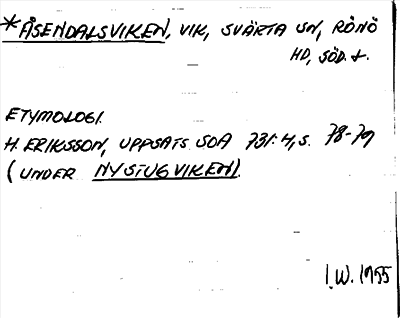 *ÅSENDALSVIKEN, VIK, SVÄRTA SN, RÖNÖ
HD, SÖD. L.
ETYMOLOGI.
H. ERIKSSON, UPPSATS SOA 731:4, S. 78-79
(UNDER NYSTUGVIKEN).
I.W. 1955